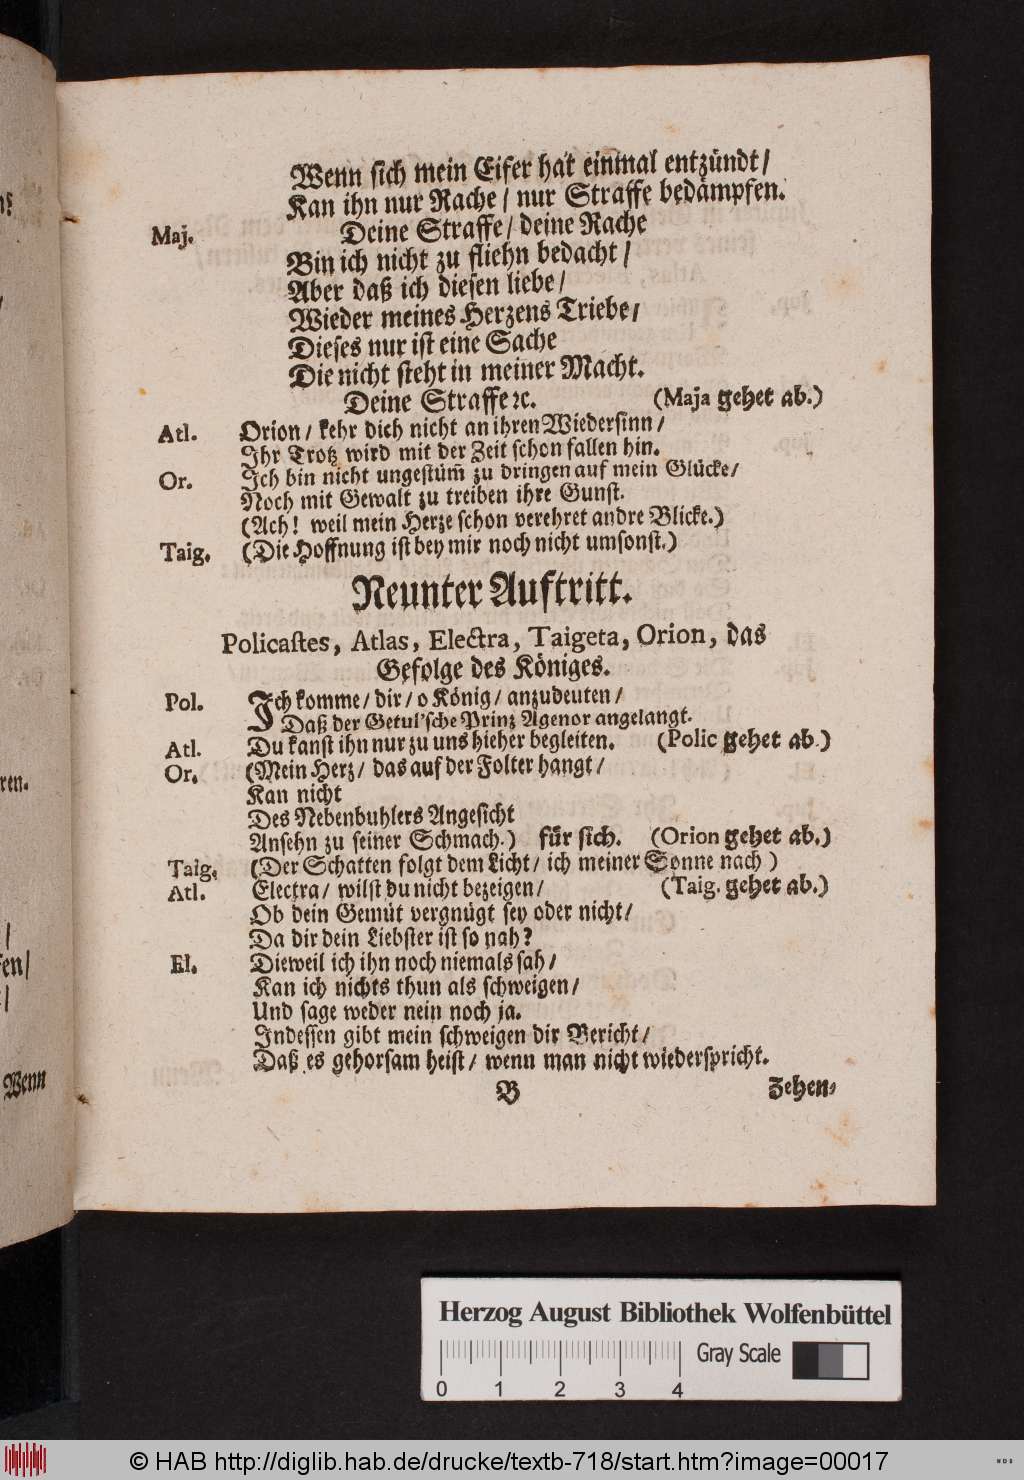 Wenn sich mein Eifer hat einmal entzündt/
Kan ihn nur Rache/ nur Straffe bedämpfen.
Maj. Deine Straffe/ deine Rache
Bin ich nicht zu fliehn bedacht/
Aber daß ich diesen liebe/
Wieder meines Herzens Triebe/
Dieses nur ist eine Sache
Die nicht steht in meiner Macht.
Deine Straffe ꝛc. (Maja gehet ab.)
Atl. Orion/ kehr dich nicht an ihren Wiedersinn/
Ihr Trotz wird mit der Zeit schon fallen hin.
Or. Ich bin nicht ungestüm̃ zu dringen auf mein Glücke/
Noch mit Gewalt zu treiben ihre Gunst.
(Ach! weil mein Herze schon verehret andre Blicke.)
Taig. (Die Hoffnung ist bey mir noch nicht umsonst.)
Neunter Auftritt.
Policastes, Atlas, Electra, Taigeta, Orion, das
Gefolge des Königes.
Pol. Ich komme/ dir/ o König/ anzudeuten/
Daß der Getul'sche Prinz Agenor angelangt.
Atl. Du kanst ihn nur zu uns hieher begleiten. (Polic gehet ab.)
Or. (Mein Herz/ das auf der Folter hangt/
Kan nicht
Des Nebenbuhlers Angesicht
Ansehn zu seiner Schmach.) für sich. (Orion gehet ab.)
Taig. (Der Schatten folgt dem Licht/ ich meiner Sonne nach)
Atl. Electra/ wilst du nicht bezeigen/ (Taig. gehet ab.)
Ob dein Gemüt vergnügt sey oder nicht/
Da dir dein Liebster ist so nah?
El. Dieweil ich ihn noch niemals sah/
Kan ich nichts thun als schweigen/
Und sage weder nein noch ja.
Indessen gibt mein schweigen dir Bericht/
Daß es gehorsam heist/ wenn man nicht wiederspricht.
B Zehen-
ren.
Wenn
Herzog August Bibliothek Wolfenbüttel
Gray Scale
0 1 2 3 4
© HAB http://diglib.hab.de/drucke/textb-718/start.htm?image=00017